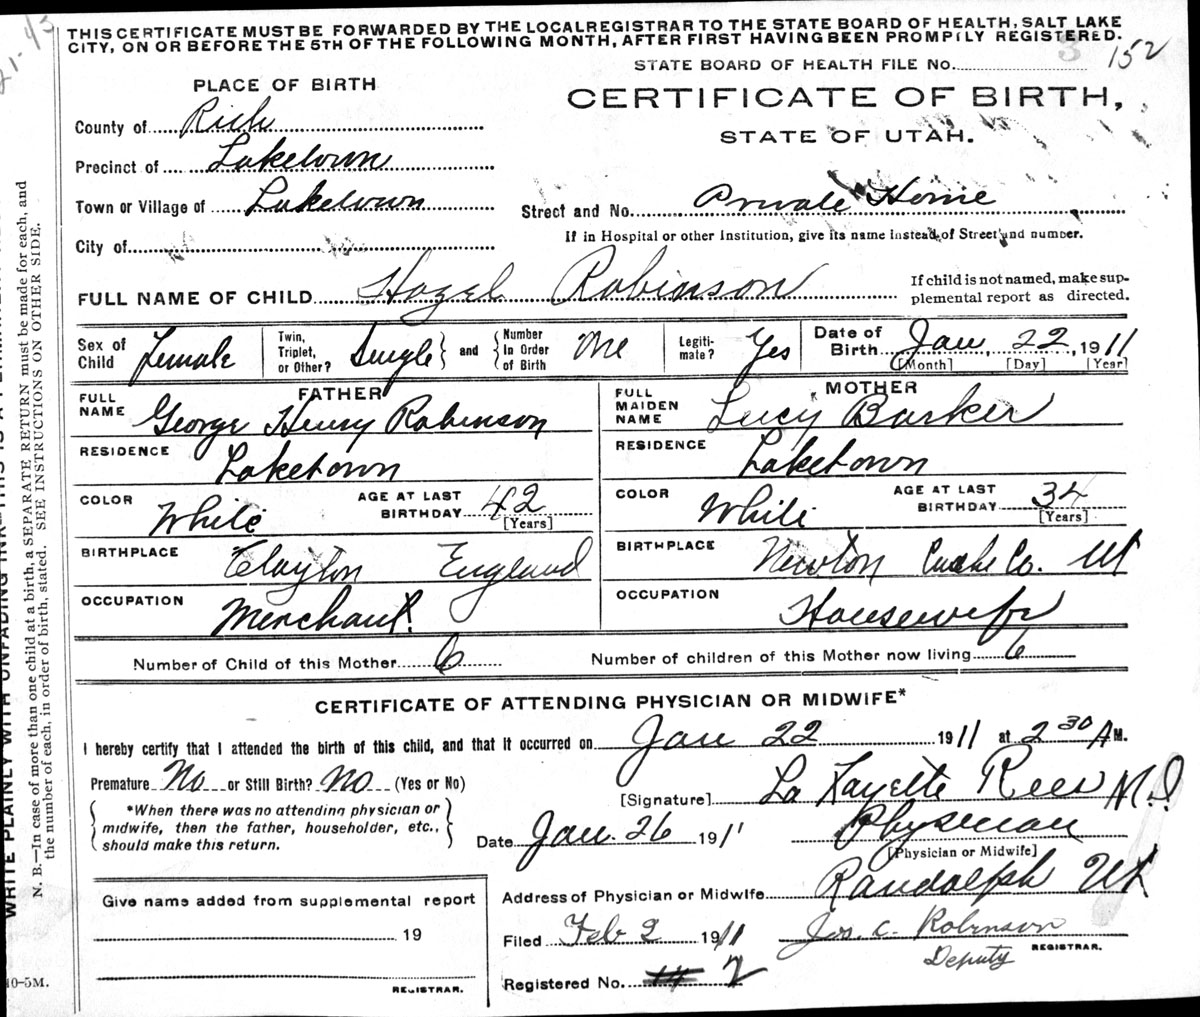 21-43
THIS CERTIFICATE MUST BE FORWARDED BY THE LOCAL REGISTRAR TO THE STATE BOARD OF HEALTH, SALT LAKE
CITY, ON OR BEFORE THE 5TH OF THE FOLLOWING MONTH, AFTER FIRST HAVING BEEN PROMPTLY REGISTERED.
STATE BOARD OF HEALTH FILE NO. 3 152
PLACE OF BIRTH
CERTIFICATE OF BIRTH,
STATE OF UTAH.
County of Rich
Precinct of Laketown
Town or Village of Laketown
Street and No. Private Home
City of
If in Hospital or other Institution, give its name instead of Street and number.
FULL NAME OF CHILD Hazel Robinson
If child is not named, make sup-
plemental report as directed.
Sex of Child Female
Twin, Triplet, or Other? Single and Number In Order of Birth One
Legiti-mate? Yes
Date of Birth Jan, 22, 1911
[Month] [Day] [Year]
FATHER
FULL NAME George Henry Robinson
RESIDENCE Laketown
COLOR White AGE AT LAST BIRTHDAY 42
[Years]
BIRTHPLACE Clayton England
OCCUPATION Merchant
MOTHER
FULL MAIDEN NAME Lucy Barker
RESIDENCE Laketown
COLOR White AGE AT LAST BIRTHDAY 34
[Years]
BIRTHPLACE Newton Cache Co. Ut
OCCUPATION Housewife
Number of Child of this Mother 6 Number of children of this Mother now living 6
CERTIFICATE OF ATTENDING PHYSICIAN OR MIDWIFE*
I hereby certify that I attended the birth of this child, and that it occurred on Jan 22 1911 at 2 30 A M.
Premature No or Still Birth? No (Yes or No)
*When there was no attending physician or
midwife, then the father, householder, etc.,
should make this return.
[Signature] La Fayette Rees M.D.
Date Jan. 26 1911 Physician
[Physician or Midwife]
Address of Physician or Midwife Randolph Ut
Give name added from supplemental report
19
REGISTRAR.
Filed Feb 2 1911 Jos. C. Robinson
Deputy REGISTRAR.
Registered No. 14 2
10-5M.
N. B.—In case of more than one child at a birth, a SEPARATE RETURN must be made for each, and
the number of each, in order of birth, stated. SEE INSTRUCTIONS ON OTHER SIDE.
WRITE PLAINLY WITH UNFADING INK—THIS IS A PERMANENT